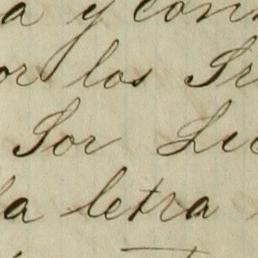 a y con
or los Sr
Sor Lu
la letra